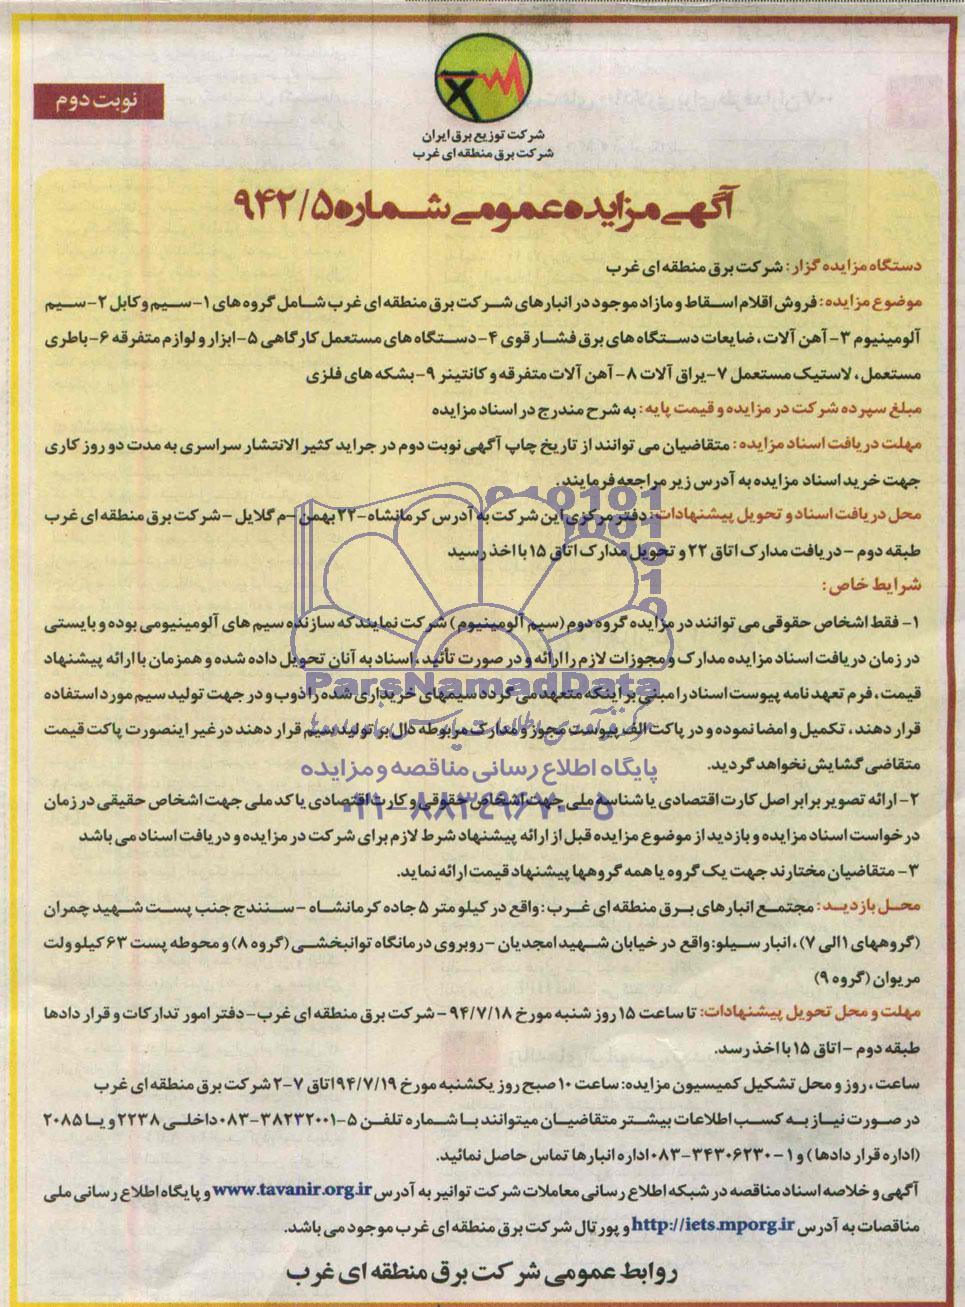 نوبت دوم
شرکت توزیع برق ایران
شرکت برق منطقه ای غرب
آگهی مزایده عمومی شماره ۹۴۲/۵
دستگاه مزایده گزار: شرکت برق منطقه ای غرب
موضوع مزایده: فروش اقلام اسقاط و مازاد موجود در انبارهای شرکت برق منطقه ای غرب شامل گروه های ۱- سیم و کابل ۲- سیم
آلومینیوم ۳- آهن آلات، ضایعات دستگاه های برق فشار قوی ۴- دستگاه های مستعمل کارگاهی ۵- ابزار و لوازم متفرقه ۶- باطری
مستعمل، لاستیک مستعمل ۷- یراق آلات ۸- آهن آلات متفرقه و کانتینر ۹- بشکه های فلزی
مبلغ سپرده شرکت در مزایده و قیمت پایه: به شرح مندرج در اسناد مزایده
مهلت دریافت اسناد مزایده: متقاضیان می توانند از تاریخ چاپ آگهی نوبت دوم در جراید کثیر الانتشار سراسری به مدت دو روز کاری
جهت خرید اسناد مزایده به آدرس زیر مراجعه فرمایند.
محل دریافت اسناد و تحویل پیشنهادات: دفتر مرکزی این شرکت به آدرس کرمانشاه - ۲۲ بهمن - م گلایل - شرکت برق منطقه ای غرب
طبقه دوم - دریافت مدارک اتاق ۲۲ و تحویل مدارک اتاق ۱۵ با اخذ رسید
شرایط خاص:
۱- فقط اشخاص حقوقی می توانند در مزایده گروه دوم (سیم آلومینیوم) شرکت نمایند که سازنده سیم های آلومینیومی بوده و بایستی
در زمان دریافت اسناد مزایده مدارک و مجوزات لازم را ارائه و در صورت تأئید، اسناد به آنان تحویل داده شده و همزمان با ارائه پیشنهاد
قیمت، فرم تعهد نامه پیوست اسناد را مبنی بر اینکه متعهد می گردد سیمهای خریداری شده را ذوب و در جهت تولید سیم مورد استفاده
قرار دهند، تکمیل و امضا نموده و در پاکت الف پیوست مجوز و مدارک مربوطه دال بر تولید سیم قرار دهند در غیر اینصورت پاکت قیمت
متقاضی گشایش نخواهد گردید.
۲- ارائه تصویر برابر اصل کارت اقتصادی یا شناسه ملی جهت اشخاص حقوقی و کارت اقتصادی یا کد ملی جهت اشخاص حقیقی در زمان
درخواست اسناد مزایده و بازدید از موضوع مزایده قبل از ارائه پیشنهاد شرط لازم برای شرکت در مزایده و دریافت اسناد می باشد
۳- متقاضیان مختارند جهت یک گروه یا همه گروهها پیشنهاد قیمت ارائه نماید.
محل بازدید: مجتمع انبارهای برق منطقه ای غرب: واقع در کیلو متر ۵ جاده کرمانشاه - سنندج جنب پست شهید چمران
(گروههای ۱ الی ۷)، انبار سیلو: واقع در خیابان شهید امجدیان - روبروی درمانگاه توانبخشی (گروه ۸) و محوطه پست ۶۳ کیلو ولت
مریوان (گروه ۹)
مهلت و محل تحویل پیشنهادات: تا ساعت ۱۵ روز شنبه مورخ ۹۴/۷/۱۸ - شرکت برق منطقه ای غرب - دفتر امور تدارکات و قرار دادها
طبقه دوم - اتاق ۱۵ با اخذ رسد.
ساعت، روز و محل تشکیل کمیسیون مزایده: ساعت ۱۰ صبح روز یکشنبه مورخ ۹۴/۷/۱۹ اتاق ۷-۲ شرکت برق منطقه ای غرب
در صورت نیاز به کسب اطلاعات بیشتر متقاضیان میتوانند با شماره تلفن ۵-۳۸۲۳۲۰۰۱-۰۸۳ داخلی ۲۲۳۸ و یا ۲۰۸۵
(اداره قرار دادها) و ۱-۳۴۳۰۶۲۳۰-۰۸۳ اداره انبارها تماس حاصل نمائید.
آگهی و خلاصه اسناد مناقصه در شبکه اطلاع رسانی معاملات شرکت توانیر به آدرس www.tavanir.org.ir و پایگاه اطلاع رسانی ملی
مناقصات به آدرس http://iets.mporg.ir و پورتال شرکت برق منطقه ای غرب موجود می باشد.
روابط عمومی شرکت برق منطقه ای غرب
ParsNamadData
پایگاه اطلاع رسانی مناقصه و مزایده
۰۲۱-۸۸۳۴۹۶۷۰-۵